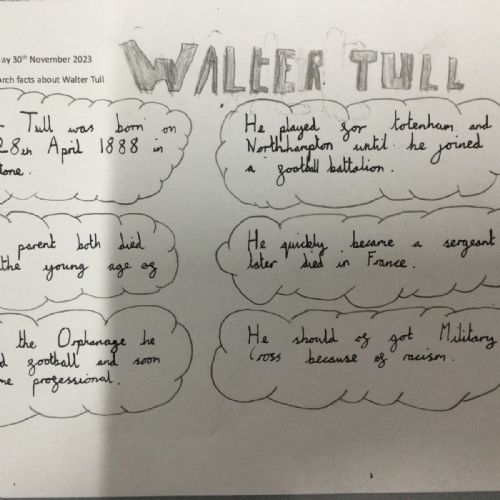 ay 30th November 2023
arch facts about Walter Tull
WALTER TULL
Tull was born on
28th April 1888 in
tone.
parent both died
the young age of
the Orphanage he
d football and soon
me professional.
He played for totenham and
Northhampton until he joined
a football battalion.
He quickly became a sergeant
later died in France.
He should of got Military
Cross because of racism.